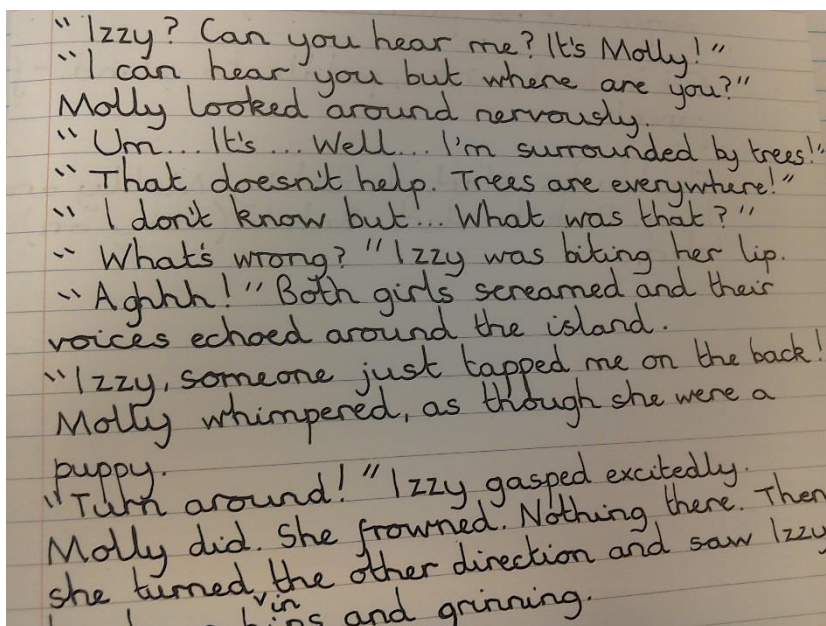 "Izzy? Can you hear me? It's Molly!"
"I can hear you but where are you?"
Molly looked around nervously.
"Um... It's... Well... I'm surrounded by trees!"
"That doesn't help. Trees are everywhere!"
"I don't know but... What was that?"
"What's wrong?" Izzy was biting her lip.
"Aghhh!" Both girls screamed and their
voices echoed around the island.
"Izzy, someone just tapped me on the back!
Molly whimpered, as though she were a
puppy.
"Turn around!" Izzy gasped excitedly.
Molly did. She frowned. Nothing there. Then
she turned in the other direction and saw Izzy
and grinning.